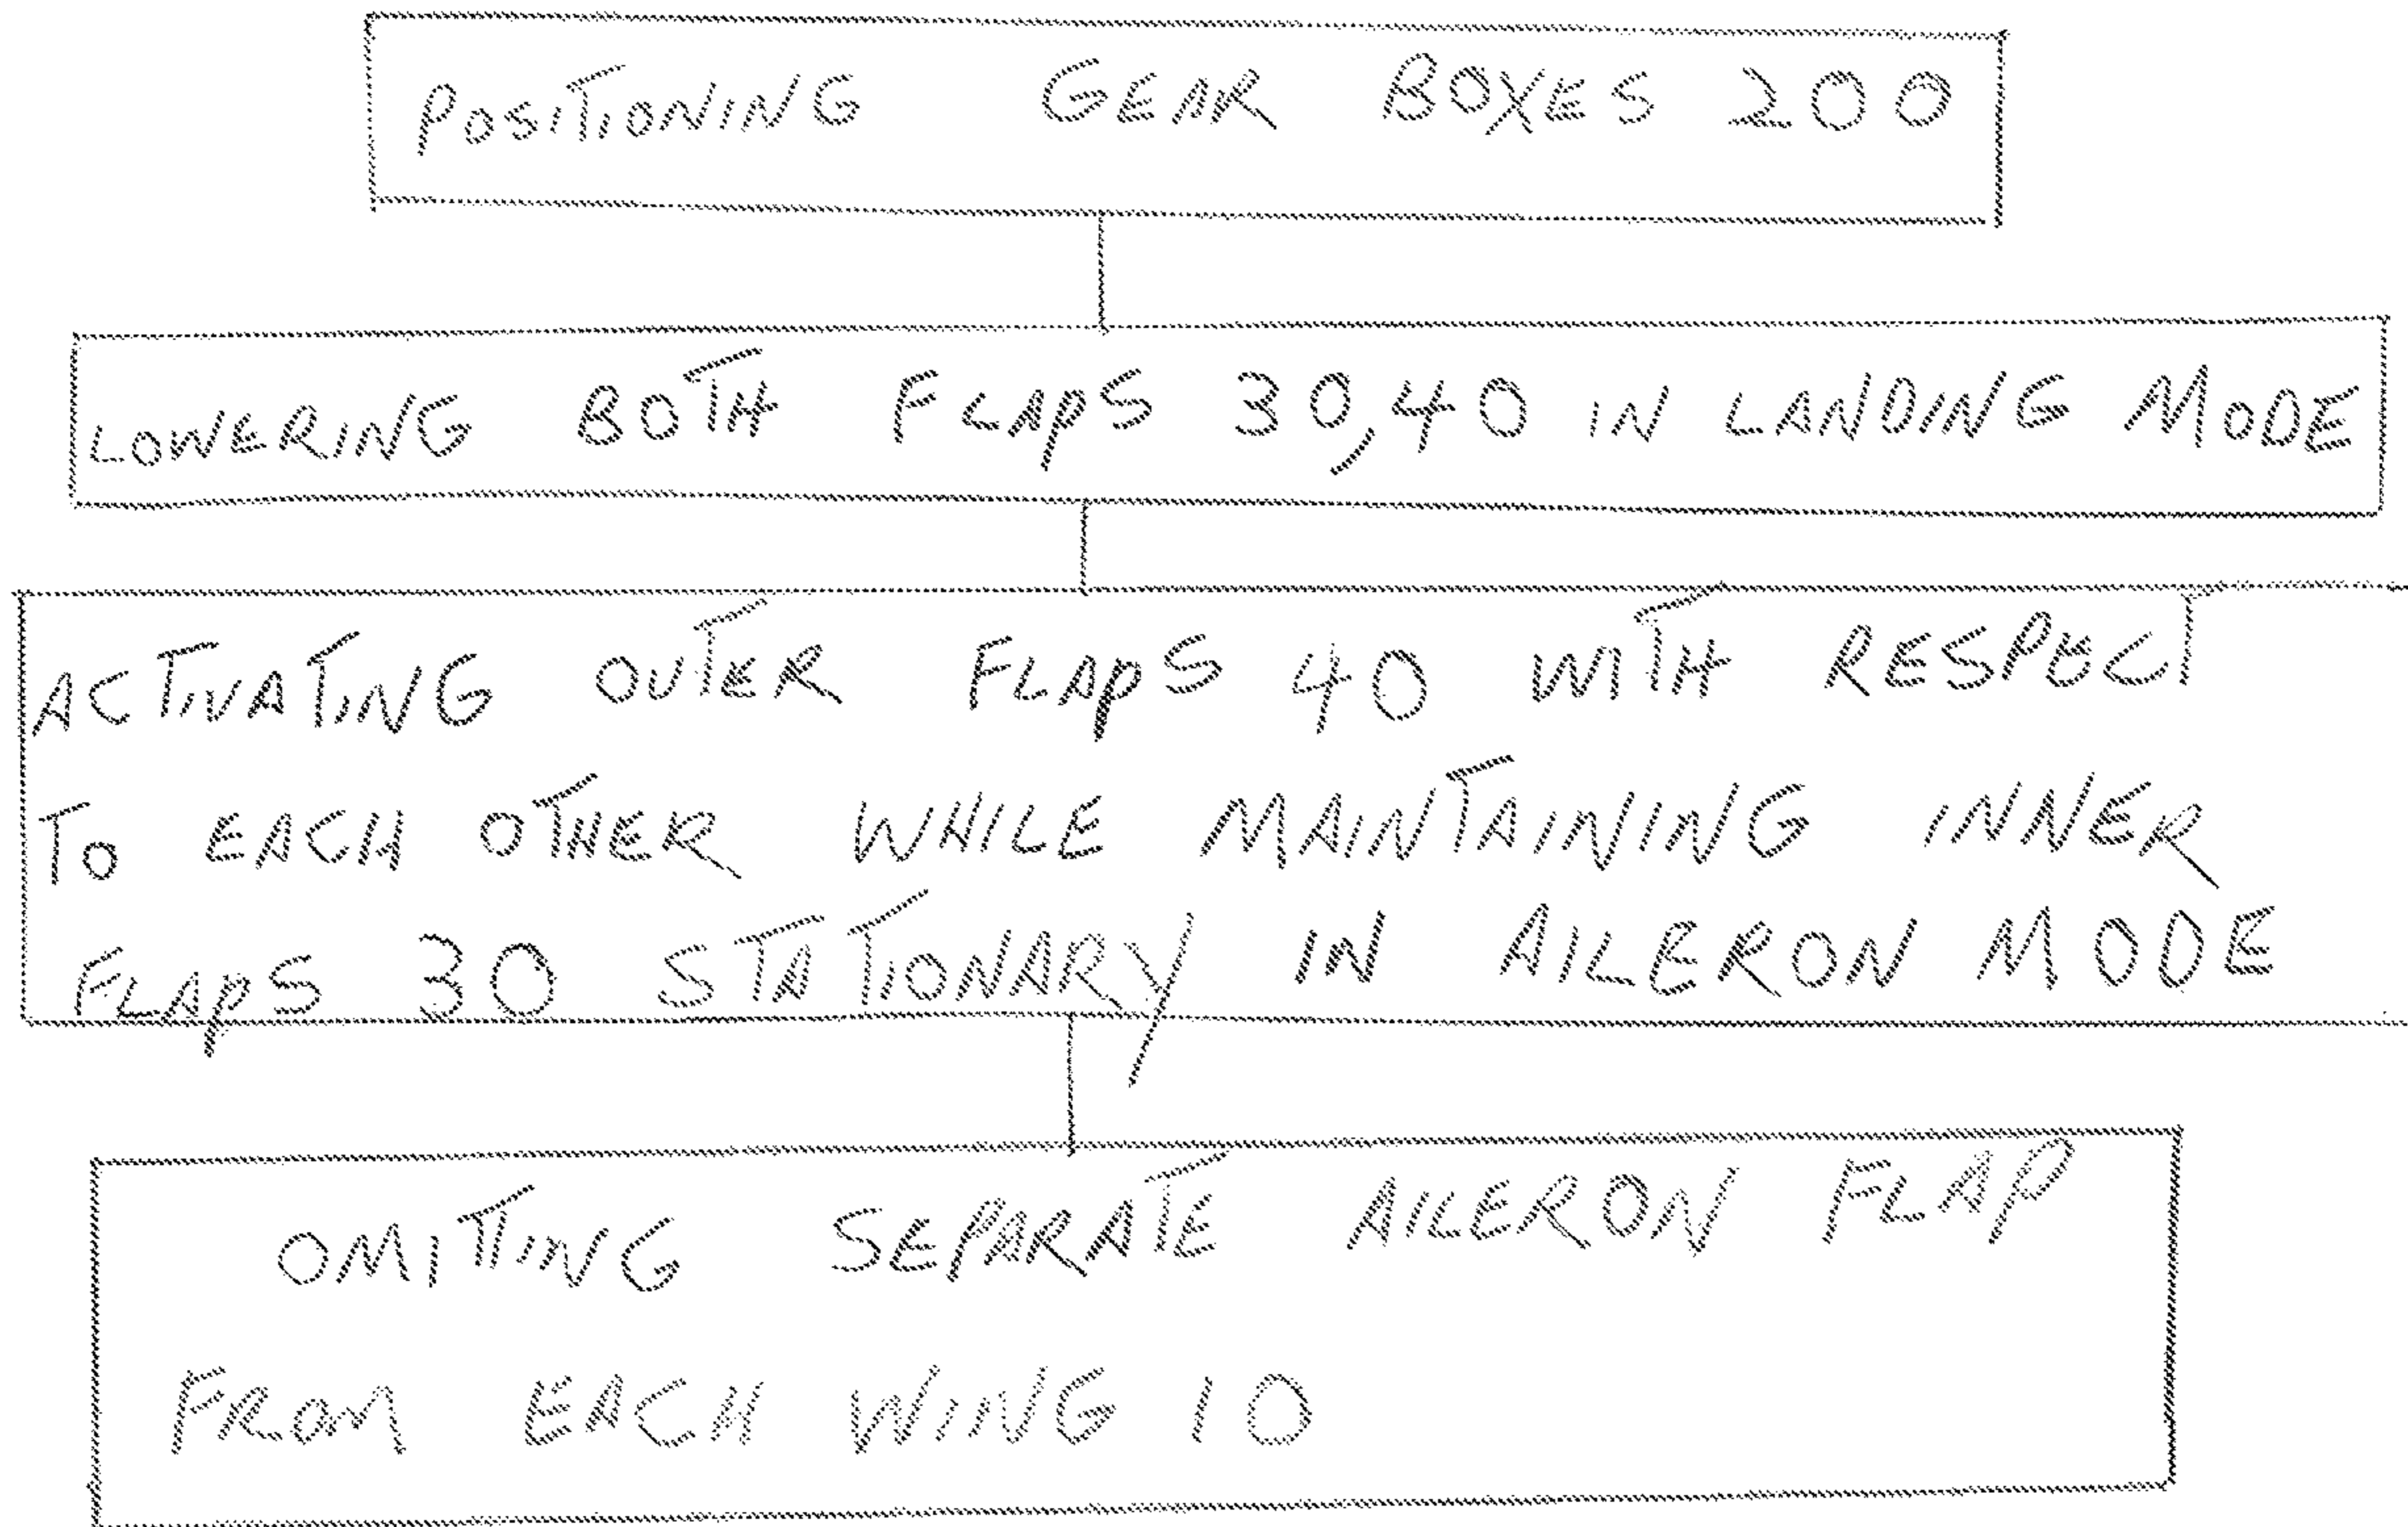 POSITIONING GEAR BOXES 200
LOWERING BOTH FLAPS 30,40 IN LANDING MODE
ACTIVATING OUTER FLAPS 40 WITH RESPECT
TO EACH OTHER WHILE MAINTAINING INNER
FLAPS 30 STATIONARY IN AILERON MODE
OMITTING SEPARATE AILERON FLAP
FROM EACH WING 10